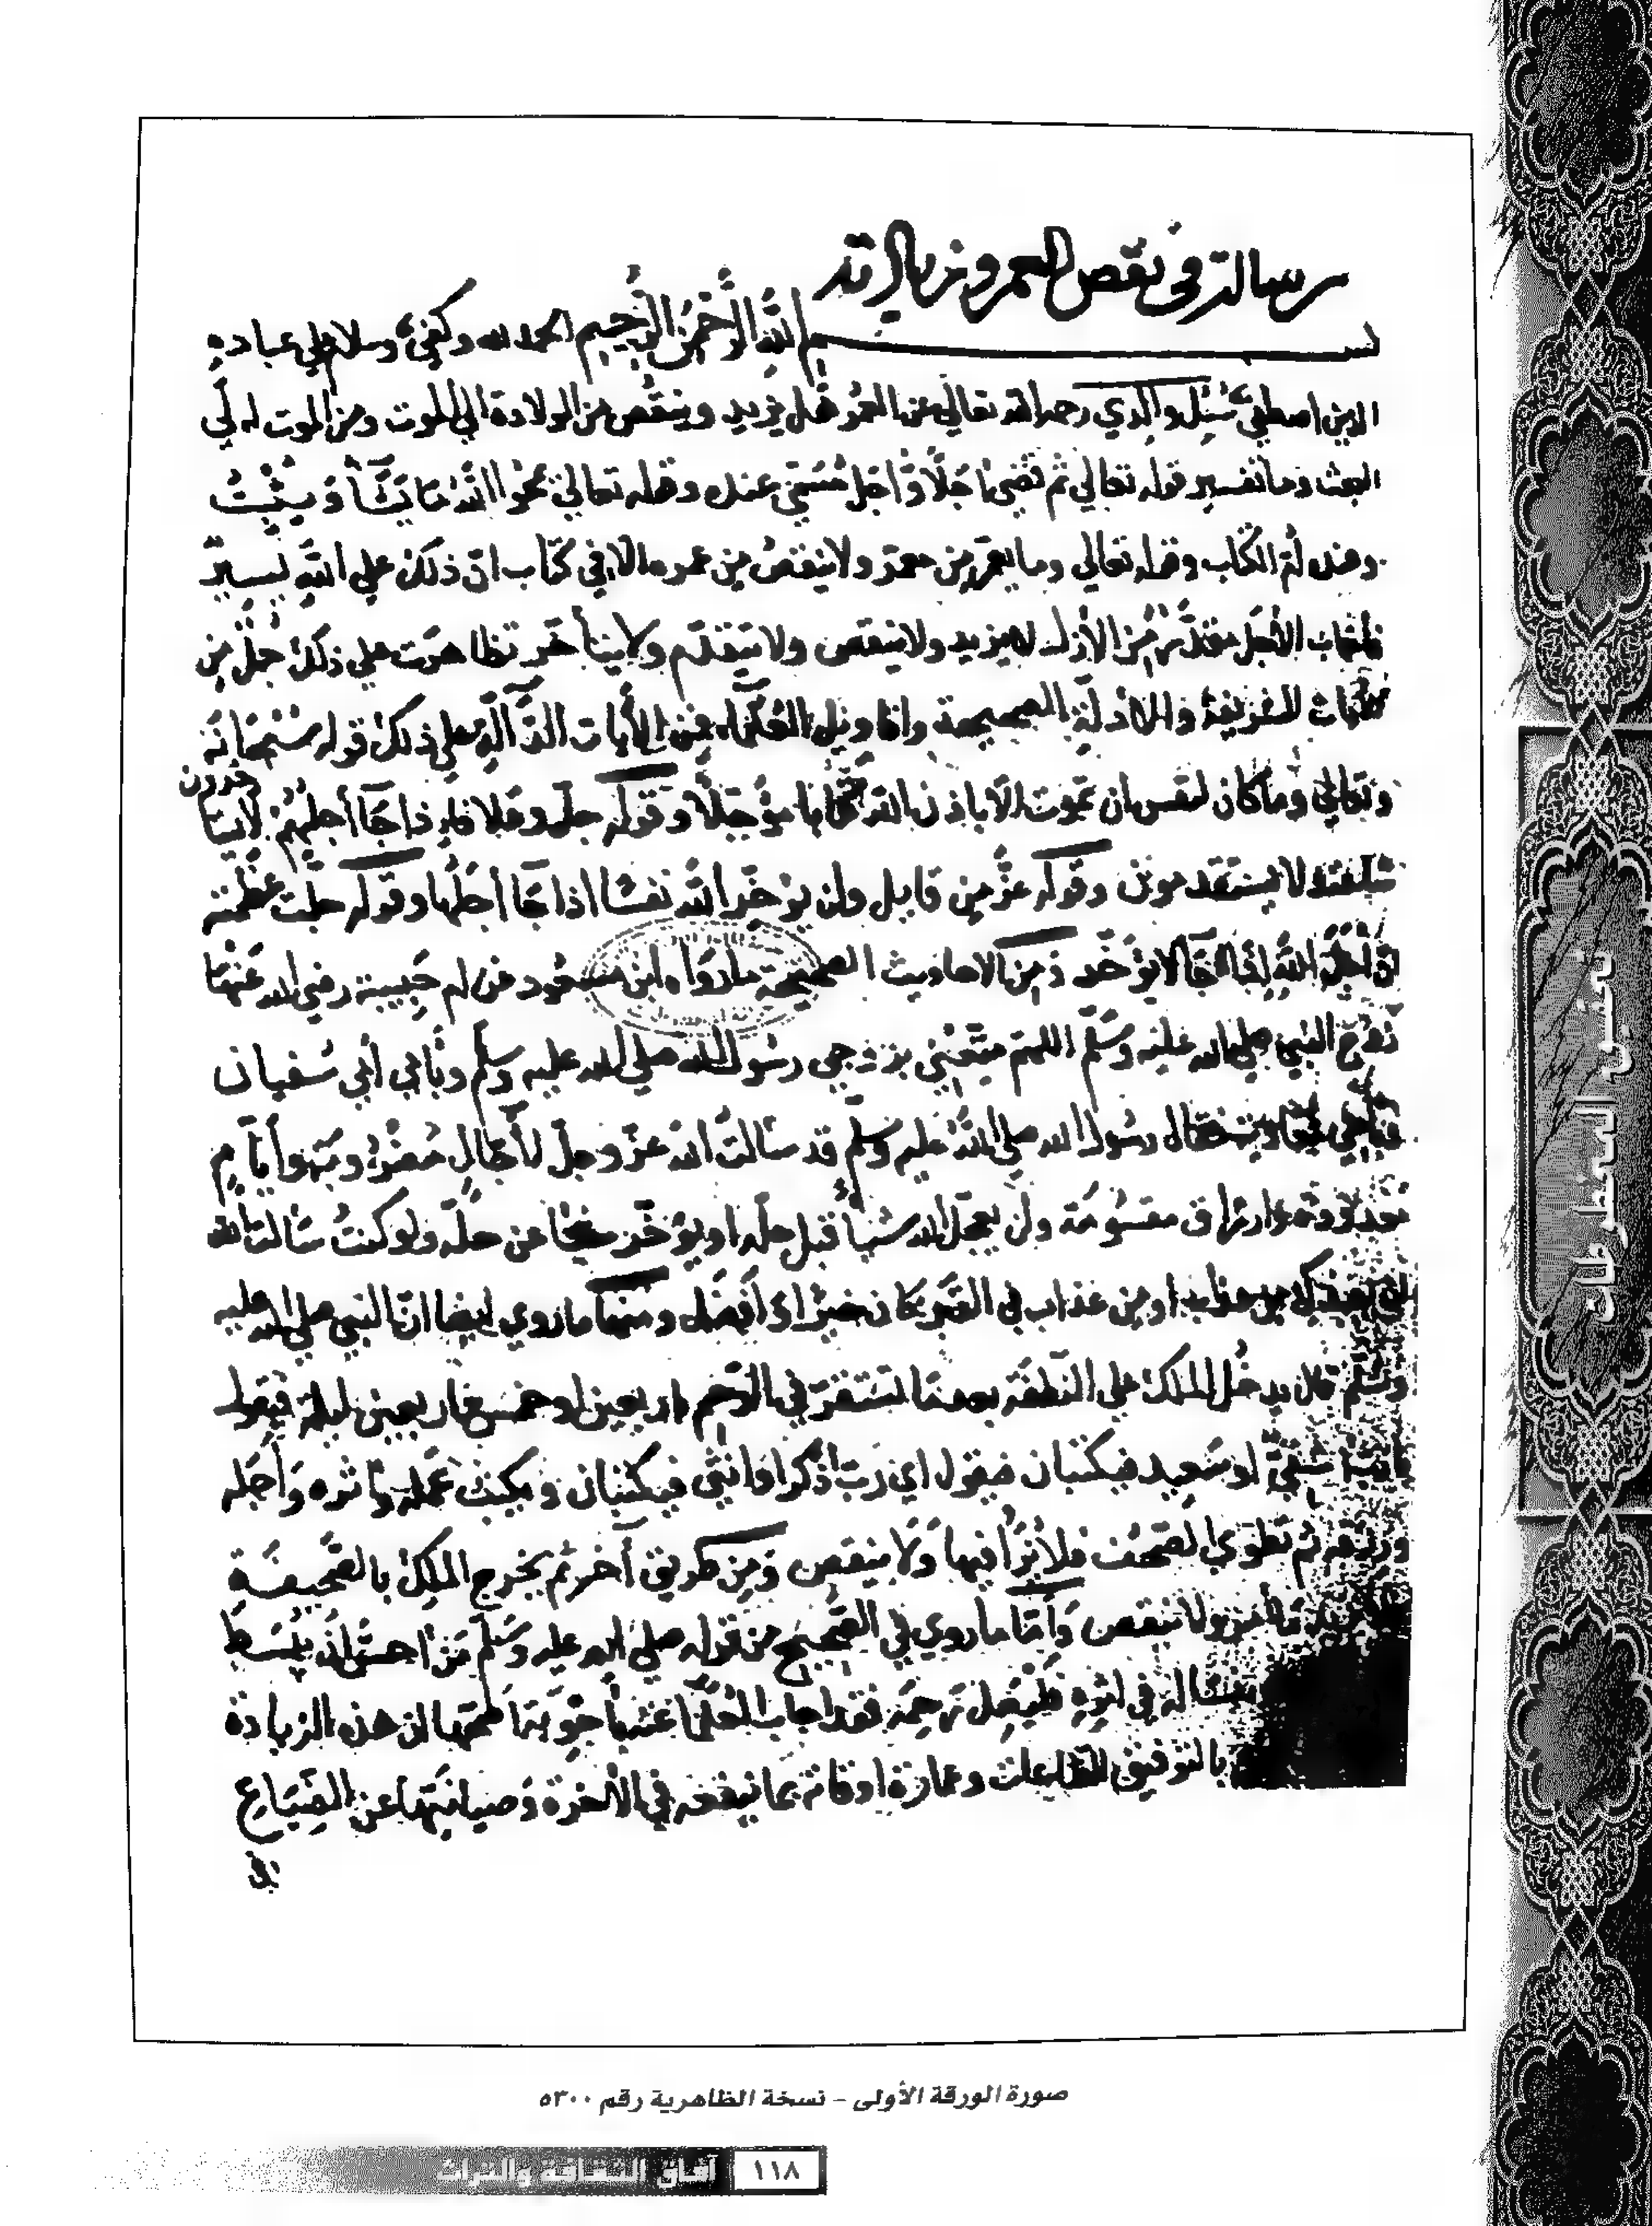 رسالة في نقص العمر وزيادته
بسم الله الرحمن الرحيم الحمد لله وكفى وسلام على عباده
الذين اصطفى سُئِل والدي رحمه الله تعالى عن العمر هل يزيد وينقص من الولادة الى الموت ومن الموت له الى
البعث وما تفسير قوله تعالى ثم قضى اجلًا وأجل مسمى عنده وقوله تعالى يمحوا الله ما يشأ ويثبت
وعنده أم الكتاب وقوله تعالى وما يعمر من معمر ولا ينقص من عمره الا في كتاب ان ذلك على الله يسير
فاجاب الأجل مقدر من الأزل لا يزيد ولا ينقص ولا يتقدم ولا يتأخر تظاهرت على ذلك جمل من
الشريفة والادلة الصحيحة واقاويل العلماء فمن الأيات الدالة على ذلك قوله سبحانه
وتعالى وما كان لنفس ان تموت الا باذن الله كتابا مؤجلًا وقوله جل وعلا فاذا جآ أجلهم لا يستأخرون
ساعة ولا يستقدمون وقوله عز من قايل ولن يؤخر الله نفسا اذا جآ أجلها وقوله جلت عظمته
ان أجل الله اذا جآ لا يؤخر ومن الاحاديث الصحيحة ما رواه ابن مسعود عن ام حبيبة رضي الله عنها
زوج النبي صلى الله عليه وسلم اللهم متعني بزوجي رسول الله صلى الله عليه وسلم وبأبي أبي سفيان
وبأخي معاوية فقال رسول الله صلى الله عليه وسلم قد سألت الله عز وجل لأجال مضروبة وأيام
معدودة وارزاق مقسومة ولن يعجل الله شيأ قبل حله او يؤخر شيئا عن حله ولو كنت سألت الله
ان يعيذك من عذاب او من عذاب في القبر كان خيرا وأفضل ومنها ما روي ايضا ان النبي صلى الله عليه
وسلم قال يدخل الملك على النطفة بعد ما تستقر في الرحم اربعين او خمس واربعين ليلة فيقول
شقي او سعيد فيكتبان فيقول اي رب أذكر او انثى فيكتبان ويكتب عمله واثره وأجله
ورزقه ثم تطوى الصحف فلا يزاد فيها ولا ينقص ومن طريق آخر ثم يخرج الملك بالصحيفة
ولا ينقص وأما ما روي في الصحيح من قوله صلى الله عليه وسلم من احب ان يبسط
له في اثره فليصل رحمه فقد اجاب العلمآ عنه بأجوبة اصحها ان هذه الزيادة
بالتوفيق للطاعات وعمارة اوقاته بما ينفعه في الآخرة وصيانتها عن الضياع
في
نصوص المخطوطات
صورة الورقة الأولى - نسخة الظاهرية رقم ٥٣٠٠
١١٨ آفاق الثقافة والتراث